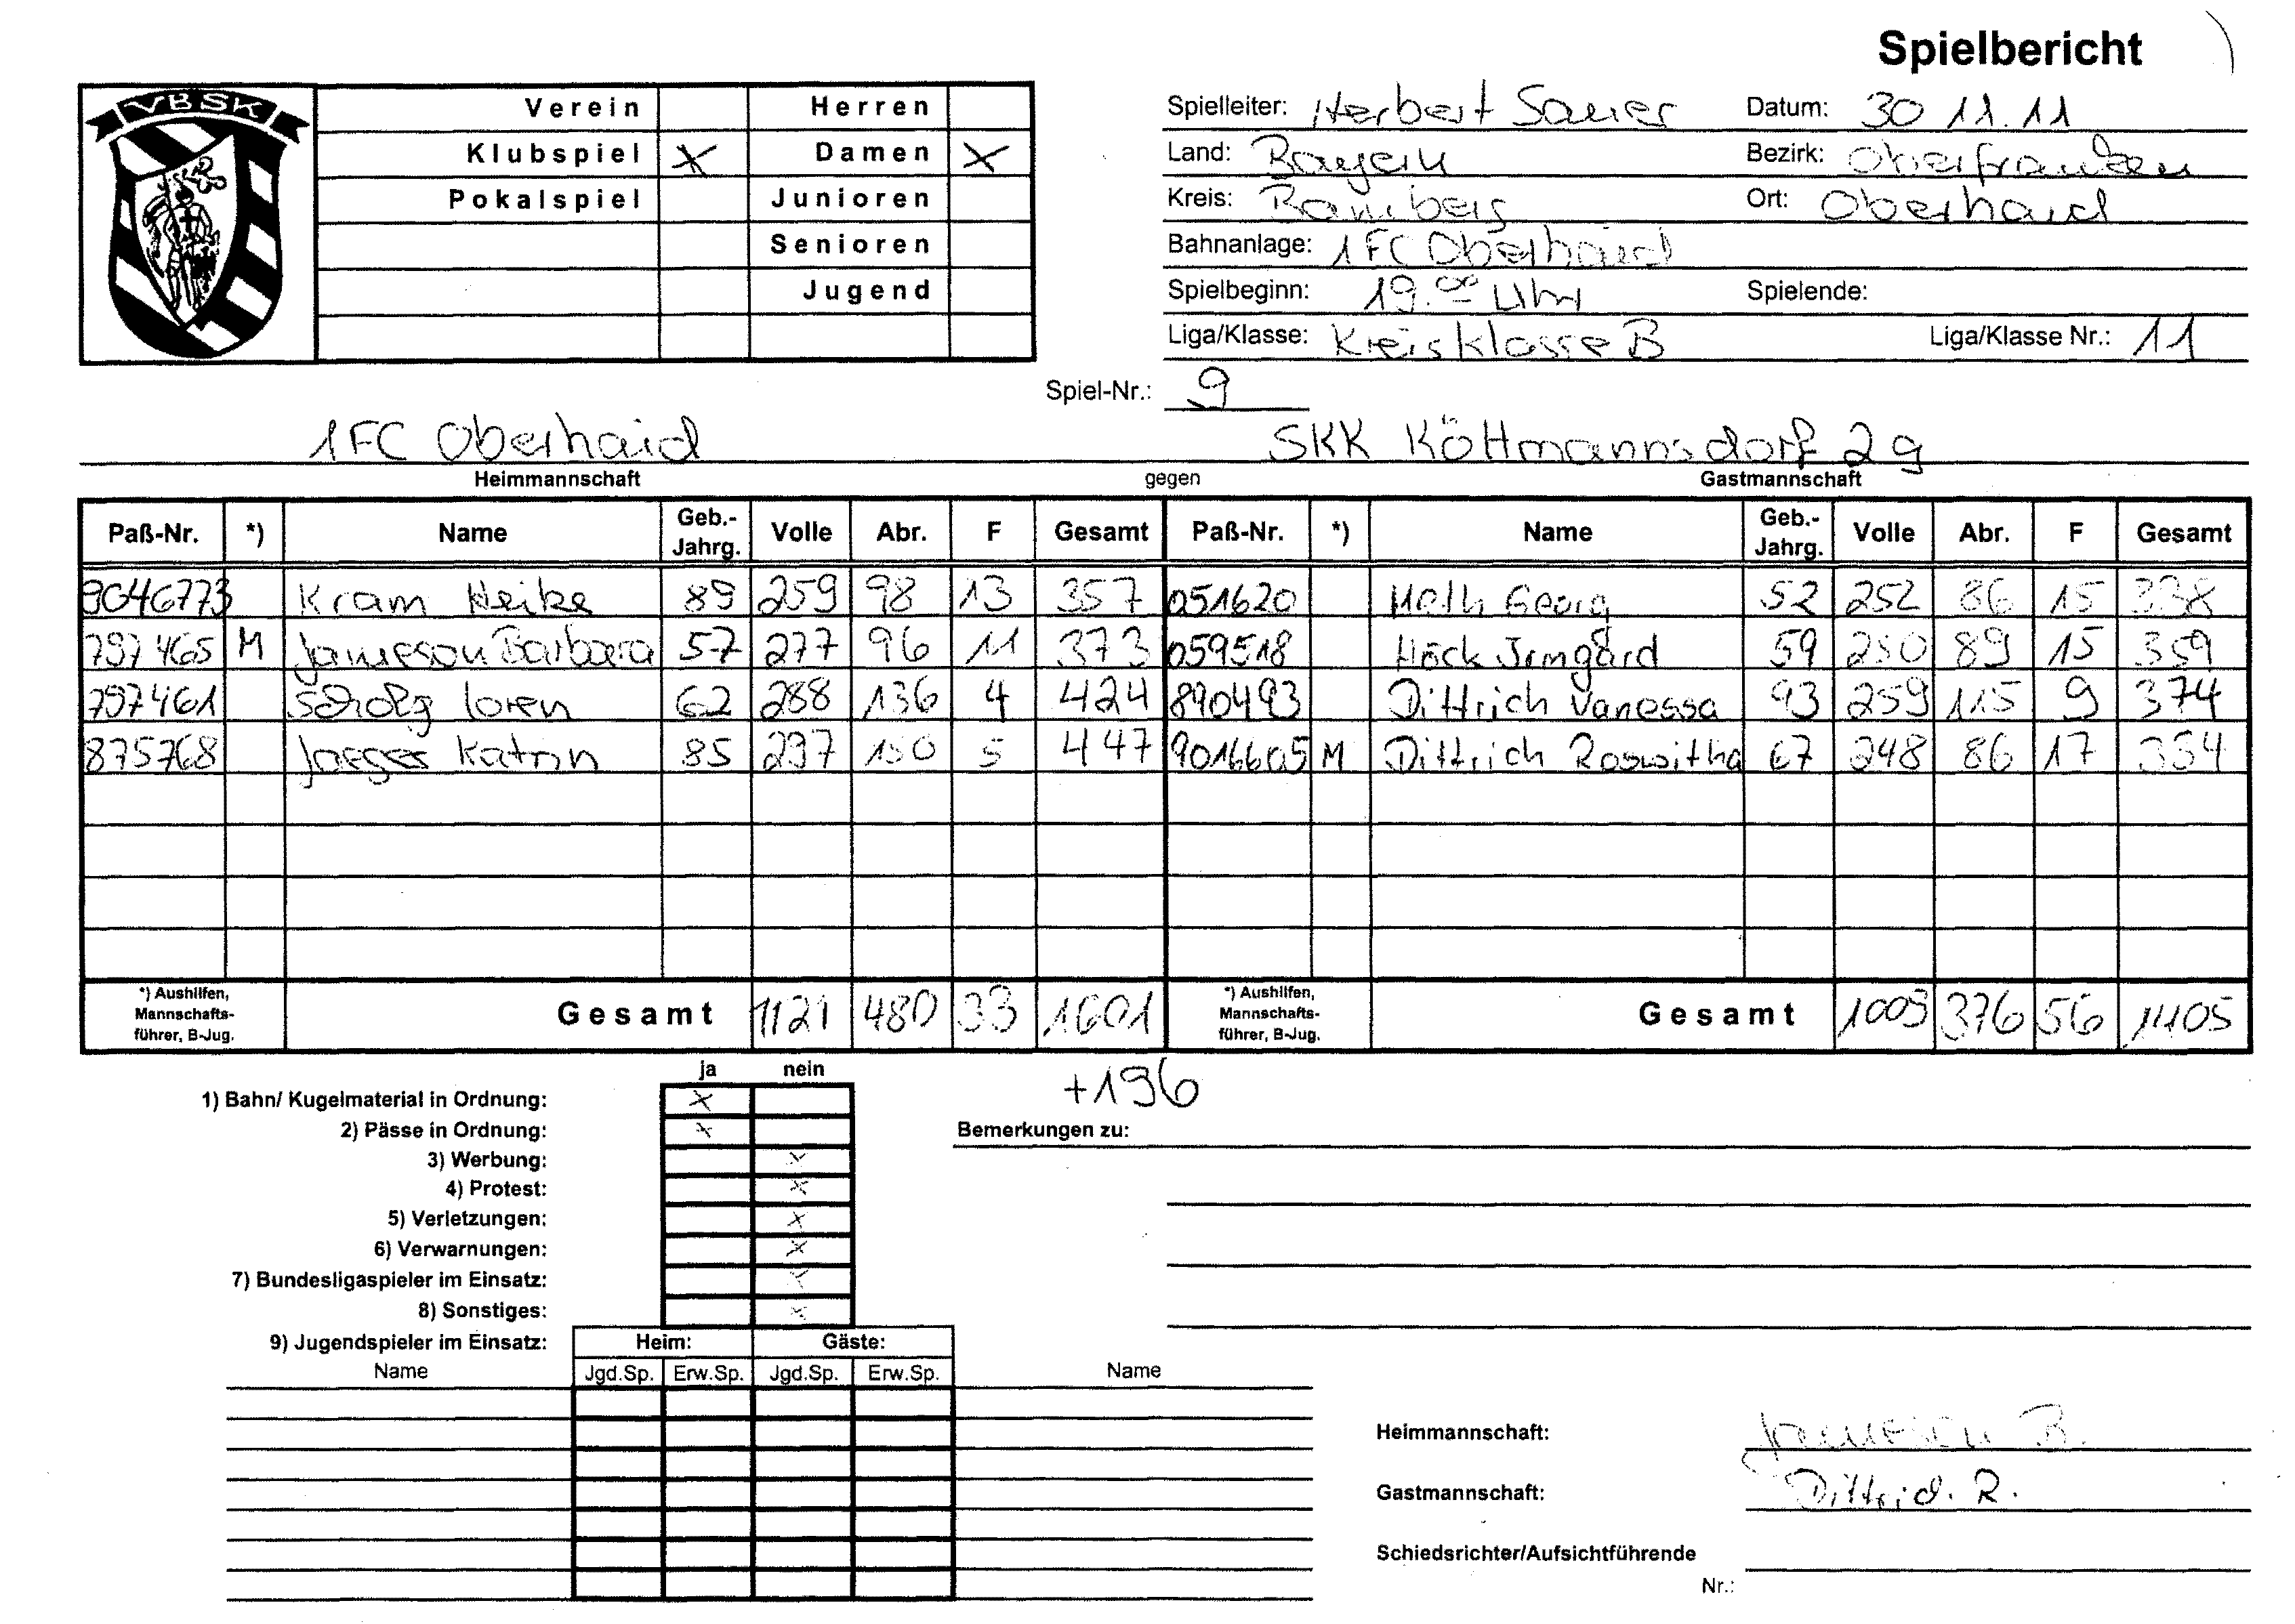 Spielbericht
VBSK
Verein Herren
Klubspiel X Damen X
Pokalspiel Junioren
Senioren
Jugend
Spielleiter: Herbert Sauer Datum: 30 11.11
Land: Bayern Bezirk: Oberfranken
Kreis: Bamberg Ort: Oberhaid
Bahnanlage: 1FC Oberhaid
Spielbeginn: 19.00 Uhr Spielende:
Liga/Klasse: Kreisklasse B Liga/Klasse Nr.: 11
Spiel-Nr.: 9
1FC Oberhaid SKK Köttmannsdorf 2 g
Heimmannschaft gegen Gastmannschaft
Paß-Nr. *) Name Geb.-Jahrg. Volle Abr. F Gesamt Paß-Nr. *) Name Geb.-Jahrg. Volle Abr. F Gesamt
9046773 Kram Heike 89 259 98 13 357 051620 Georg 52 252 86 15 338
797465 M Jameson Barbara 57 277 96 11 373 059518 Höck Irmgard 59 250 89 15 339
797461 loren 62 288 136 4 424 890493 Dittrich Vanessa 93 259 115 9 374
875768 Jaeger Katrin 85 297 150 5 447 9016605 M Dittrich Roswitha 67 248 86 17 334
*) Aushilfen, Mannschafts-führer, B-Jug. Gesamt 1121 480 33 1601 *) Aushilfen, Mannschafts-führer, B-Jug. Gesamt 1009 376 56 1405
+196
ja nein
1) Bahn/ Kugelmaterial in Ordnung: X
2) Pässe in Ordnung: X
Bemerkungen zu:
3) Werbung: X
4) Protest: X
5) Verletzungen: X
6) Verwarnungen: X
7) Bundesligaspieler im Einsatz: X
8) Sonstiges: X
9) Jugendspieler im Einsatz: Heim: Gäste:
Name Jgd.Sp. Erw.Sp. Jgd.Sp. Erw.Sp. Name
Heimmannschaft: Jameson B.
Gastmannschaft: Dittrich. R.
Schiedsrichter/Aufsichtführende
Nr.: